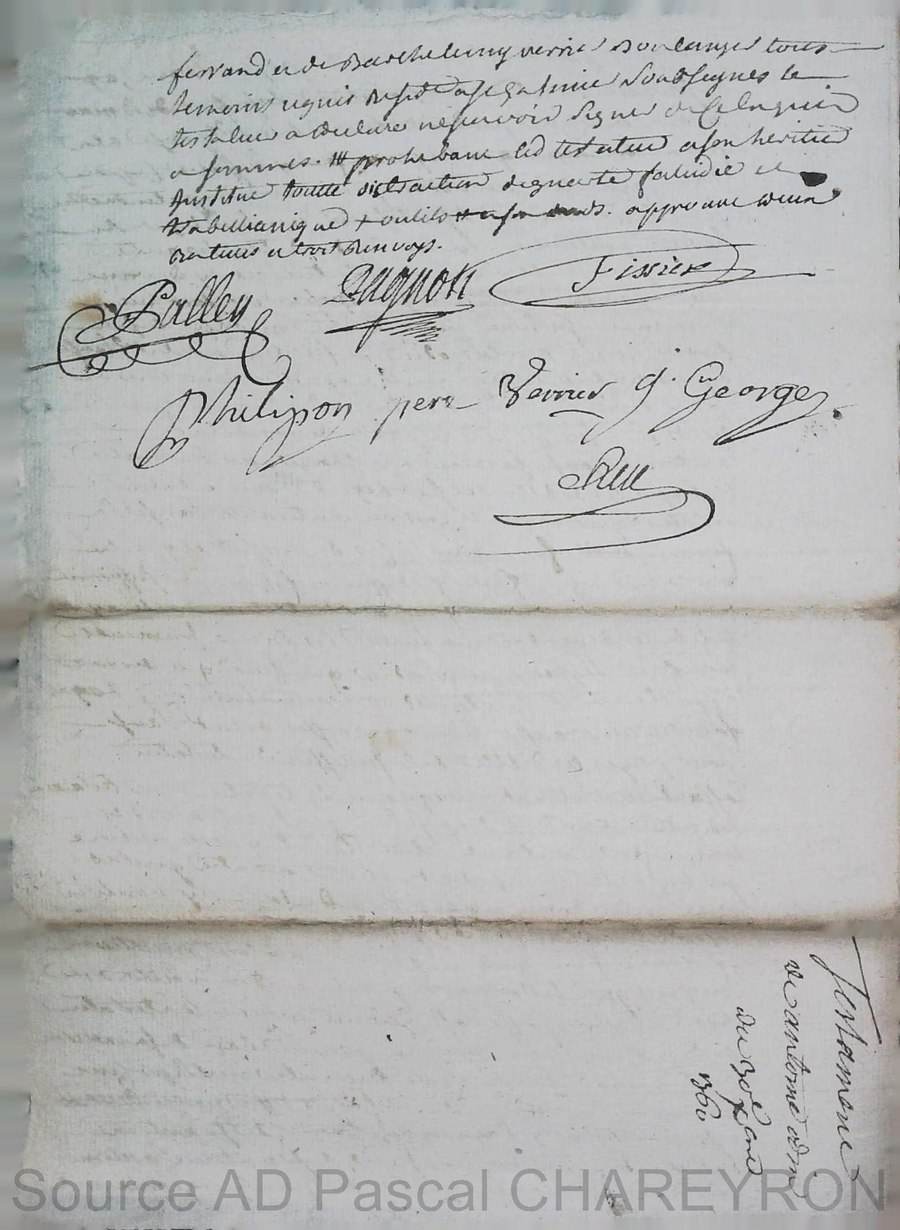 ferrand et de Barthelemy verrier Boulanger tous
temoins requis soubsignes le
testateur a declaré ne scavoir signer de ce enquis
a sommes. # prohibant led testateur a son heritier
Institué toutte distraction de quarte falcidie et
trabellianique + outils approuvé
ratures et trois Renvoys.
Palley
Pagnon
Tissier
Philippon pere
Verrier
g. George
Testament
de antoine
du 30e
1760
Source AD Pascal CHAREYRON